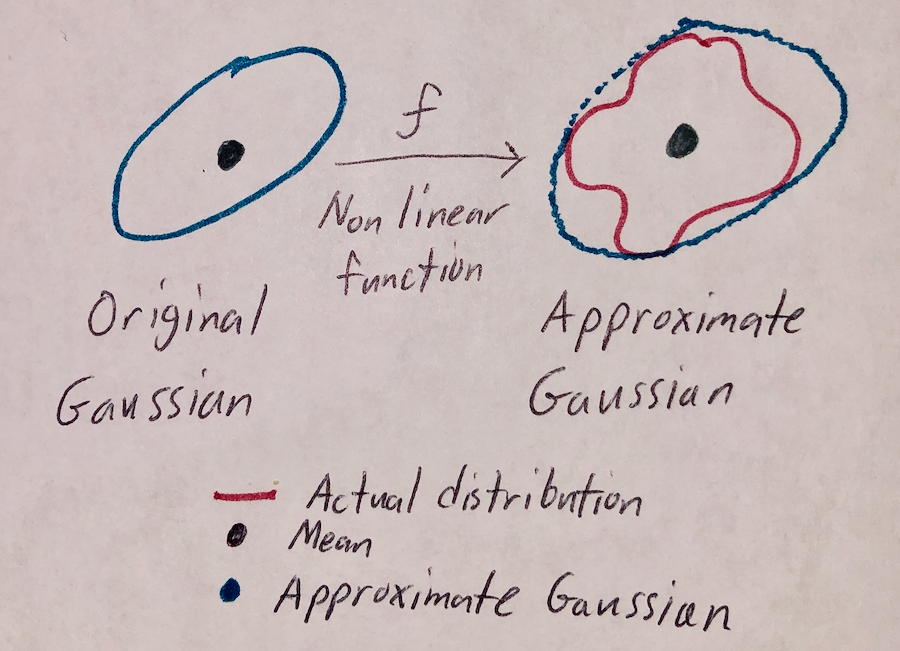 f
Non linear
function
Original
Gaussian
Approximate
Gaussian
Actual distribution
Mean
Approximate Gaussian